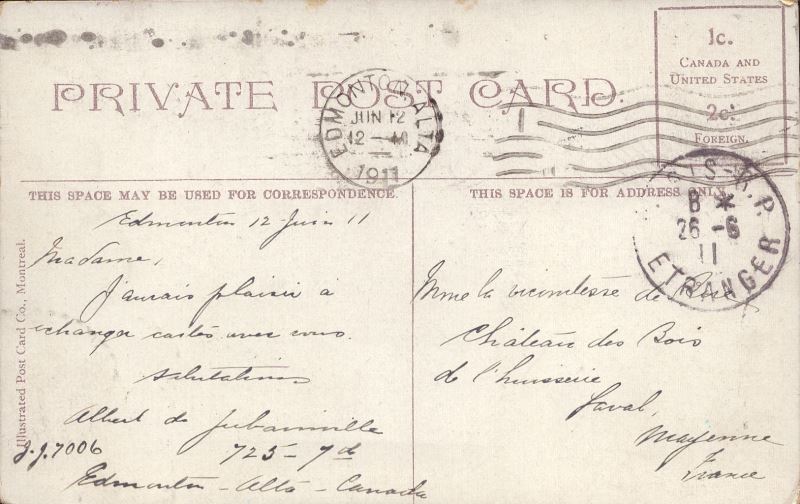 1c.
CANADA AND
UNITED STATES
2c.
FOREIGN.
PRIVATE POST CARD.
EDMONTON ALTA
JUN 12
12 - M
1911
THIS SPACE MAY BE USED FOR CORRESPONDENCE
THIS SPACE IS FOR ADDRESS ONLY
8 *
26 - 6
11
ETRANGER
Edmonton 12 Juin 11
Madame,
J'aurais plaisir à
echanger cartes avec vous.
salutations
Albert de Jubainville
725 - 7
Edmonton - Alta - Canada
J.J. 7006
Illustrated Post Card Co., Montreal.
Mme la vicomtesse de
Château des Bois
de l'huisserie
Laval,
Mayenne
France